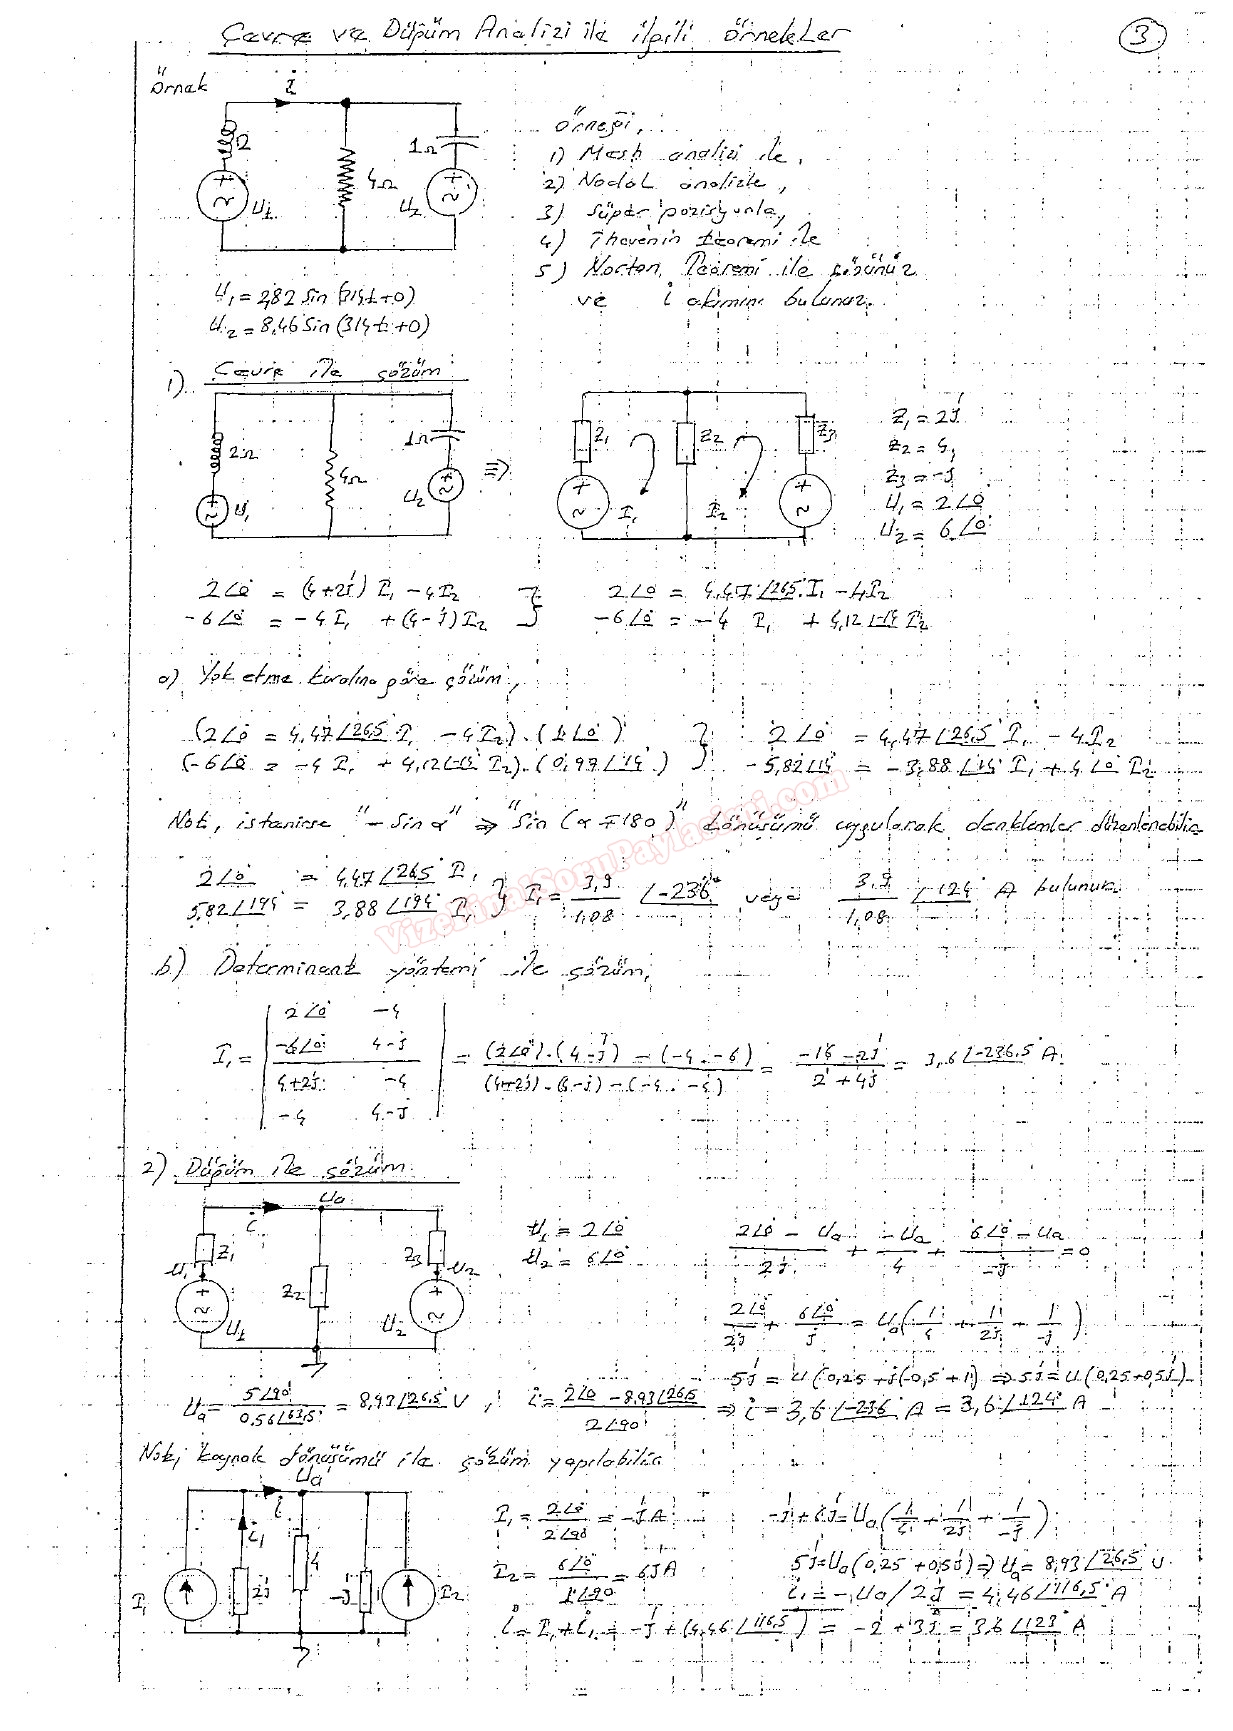 Çevre ve Düğüm Analizi ile ilgili örnekler
3
Örnek
i
2
1Ω
4Ω
U1
U2
Örneği,
1) Mesh analizi ile,
2) Nodal analizle,
3) Süper pozisyonla,
4) Thevenin teoremi ile
5) Norton Teoremi ile çözünüz
ve i akımını bulunuz.
U1 = 2,82 Sin (314t+0)
U2 = 8,46 Sin (314t+0)
1) Çevre ile çözüm
2Ω
1Ω
4Ω
U1
U2
⇒
Z1
Z2
Z3
I1
I2
Z1 = 2j
Z2 = 4,
Z3 = -j
U1 = 2∠0°
U2 = 6∠0°
2∠0° = (4+2j) I1 - 4I2 } 2∠0° = 4,47∠26,5° I1 - 4I2
-6∠0° = -4I1 + (4-j)I2 } -6∠0° = -4 I1 + 4,12∠-14 I2
a) Yok etme kuralına göre çözüm,
(2∠0° = 4,47∠26,5° I1 - 4I2).(1∠0°) } 2∠0° = 4,47∠26,5° I1 - 4I2
(-6∠0° = -4 I1 + 4,12∠-14 I2).(0,97∠14°) } -5,82∠14° = -3,88∠14° I1 + 4∠0° I2
Not, istenirse "-Sin α" ⇒ "Sin (α ∓ 180)" dönüşümü uygulanarak denklemler düzenlenebilir
2∠0° = 4,47∠26,5° I1
5,82∠194° = 3,88∠194° I1 } I1 = 3,9/1,08 ∠-236° veya 3,9/1,08 ∠124° A bulunur.
VizeFinalSoruPaylasimi.com
b) Determinent yöntemi ile çözüm,
I1 = |2∠0° -4; -6∠0° 4-j| / |4+2j -4; -4 4-j| = (2∠0°).(4-j) - (-4.-6) / (4+2j).(4-j) - (-4.-4) = -16-2j / 2+4j = 3,6∠-236,5° A.
2) Düğüm ile çözüm
Ua
i
Z1
Z2
Z3
U1
U2
U1
U2
U1 = 2∠0°
U2 = 6∠0°
(2∠0° - Ua)/2j + (-Ua)/4 + (6∠0° - Ua)/-j = 0
2∠0°/2j + 6∠0°/j = Ua(1/4 + 1/2j + 1/-j)
5j = U(0,25 + j(-0,5+1) ⇒ 5j = U(0,25+0,5j)
Ua = 5∠90°/0,56∠63,5° = 8,93∠26,5° V, i = (2∠0 - 8,93∠26,5)/2∠90° ⇒ i = 3,6∠-236° A = 3,6∠124° A
Not; kaynak dönüşümü ile çözüm yapılabilir
Ua
i
i1
I1
2j
4
-j
I2
I1 = 2∠0°/2∠90 = -jA
I2 = 6∠0°/1∠90 = 6jA
-j+6j = Ua(1/4 + 1/2j + 1/-j)
5j = Ua(0,25+0,5j) ⇒ Ua = 8,93∠26,5° V
i1 = -Ua/2j = 4,46∠116,5° A
i = I1+i1 = -j + (4,46∠116,5°) = -2+3j = 3,6∠123° A